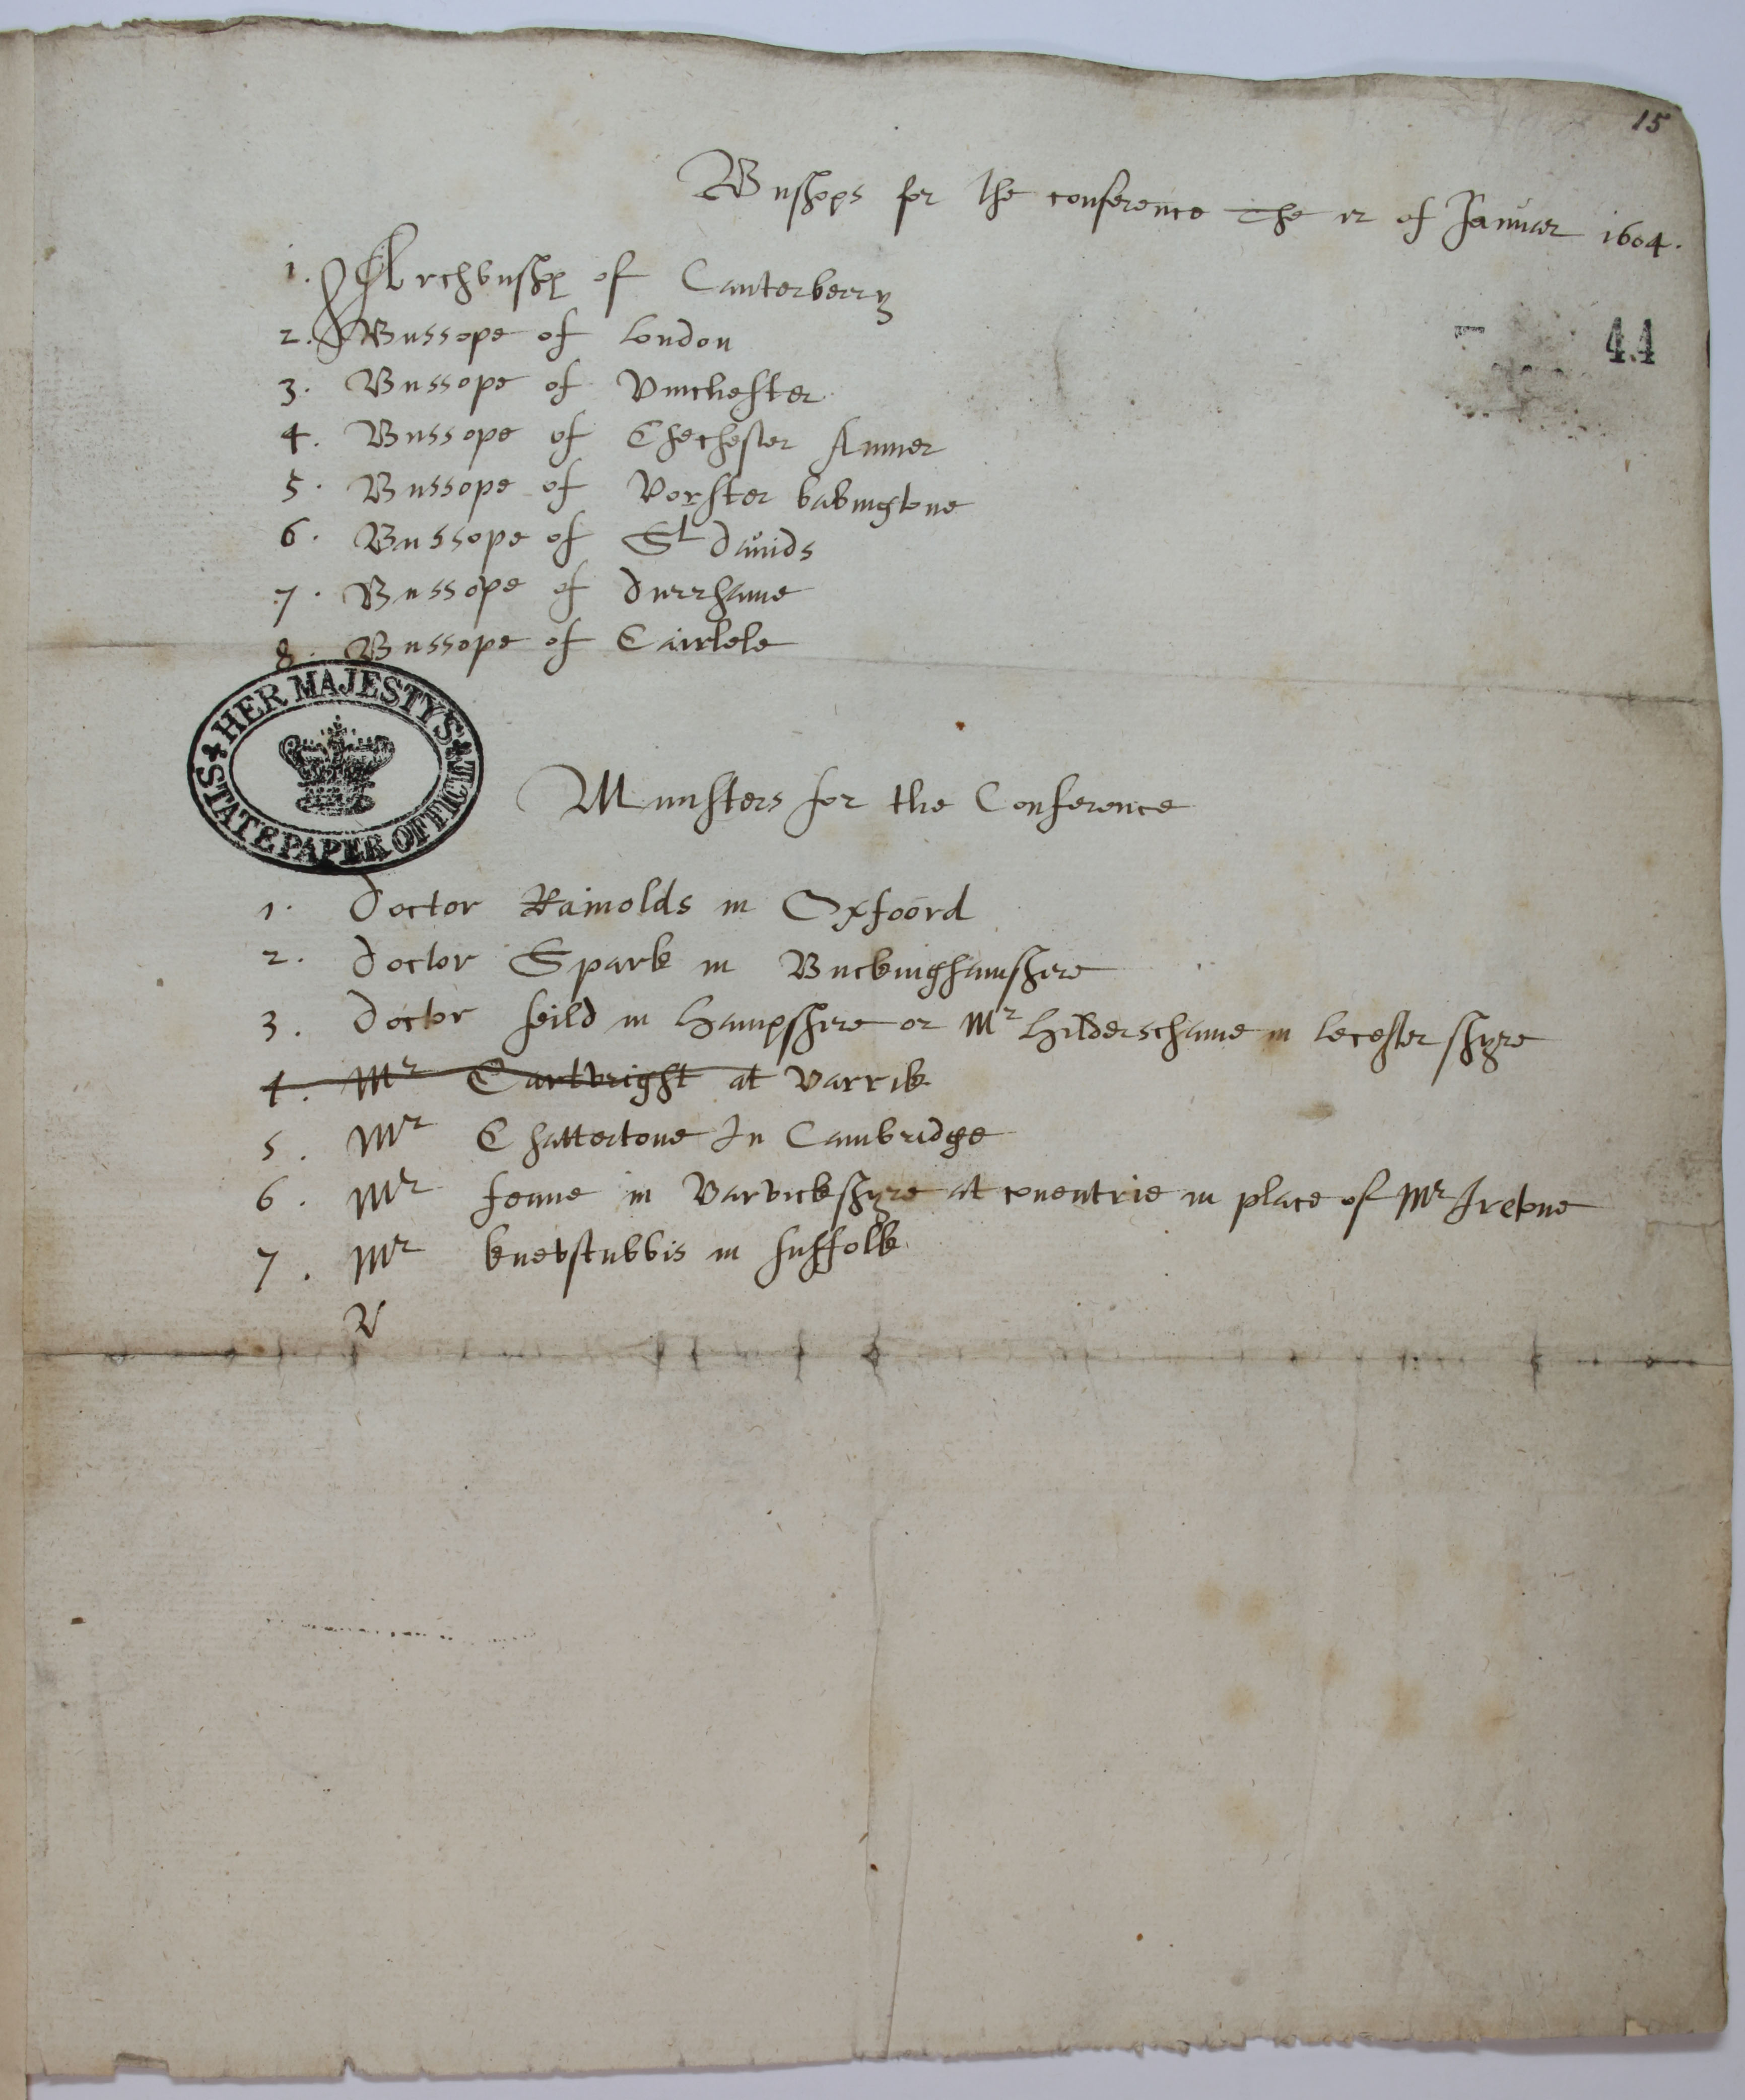 15
Bushops for the conference The 12 of Januar 1604.
44
1. Archbushop of Canterberry
2. Bussope of London
3. Bussope of Vinchester
4. Bussope of Chechester Amner
5. Bussope of Vorster babingtone
6. Bussope of St dauids
7. Bussope of durrhame
8. Bussope of Cairlele
HER MAJESTY'S STATE PAPER OFFICE
Ministers for the Conference
1. doctor Rainolds in Oxfoord
2. doctor Spark in Buckinghamshire
3. doctor feild in Hampshire or Mr Hilderschame in lecester shyre
4. Mr Cartvright at Varrik
5. Mr Chattertone In Cambridge
6. Mr fenne in Varvickshyre at couentrie in place of Mr Iretone
7. Mr knevstubbis in suffolk
V